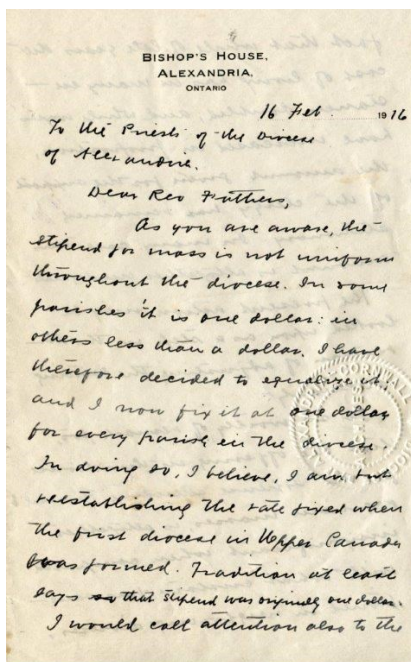 BISHOP'S HOUSE,
ALEXANDRIA,
ONTARIO
16 Feb. 1916
To the Priests of the Diocese
of Alexandria.
Dear Rev Fathers,
As you are aware, the
stipend for mass is not uniform
throughout the diocese. In some
parishes it is one dollar: in
others less than a dollar. I have
therefore decided to equalize it;
and I now fix it at one dollar
for every parish in the diocese.
In doing so, I believe, I am but
reestablishing the rate fixed when
the first diocese in Upper Canada
was formed. Tradition at least
says that stipend was originally one dollar.
I would call attention also to the
CORNWALL